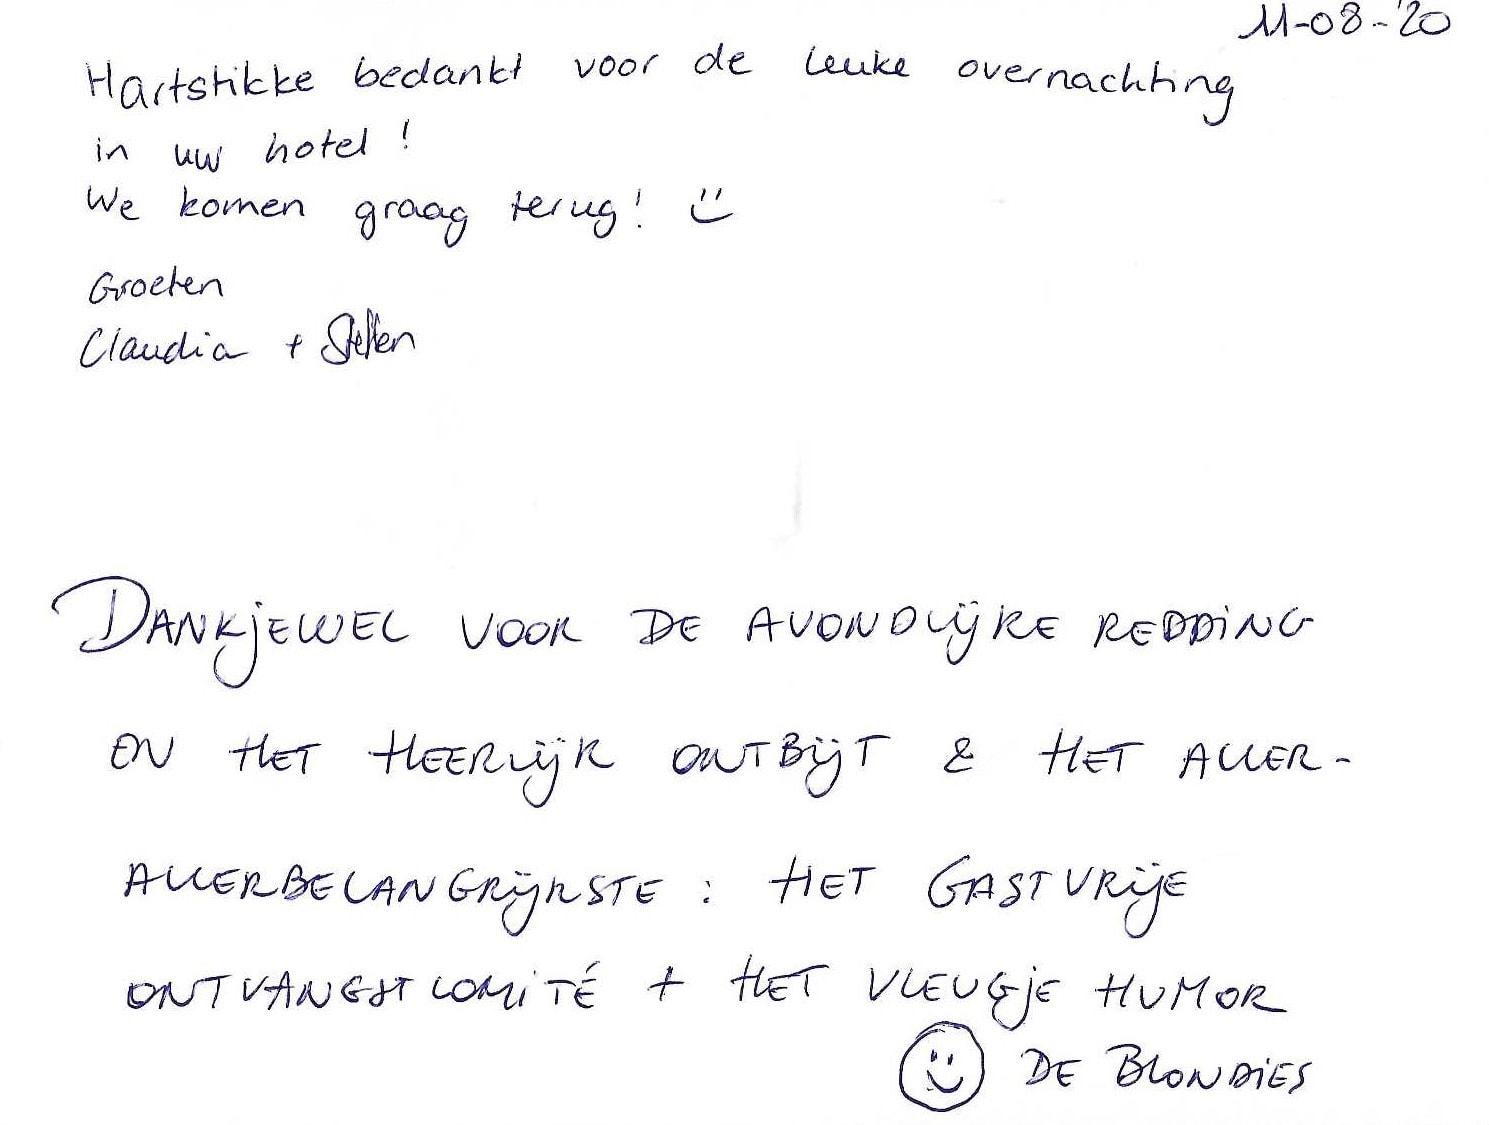 11-08-'20
Hartstikke bedankt voor de leuke overnachting
in uw hotel!
We komen graag terug!
Groeten
Claudia + Steffen
DANKJEWEL VOOR DE AVONDLIJKE REDDING
EN HET HEERLIJK ONTBIJT & HET ALLER-
ALLERBELANGRIJKSTE: HET GASTVRIJE
ONTVANGSTCOMITÉ + HET VLEUGJE HUMOR
DE BLONDIES